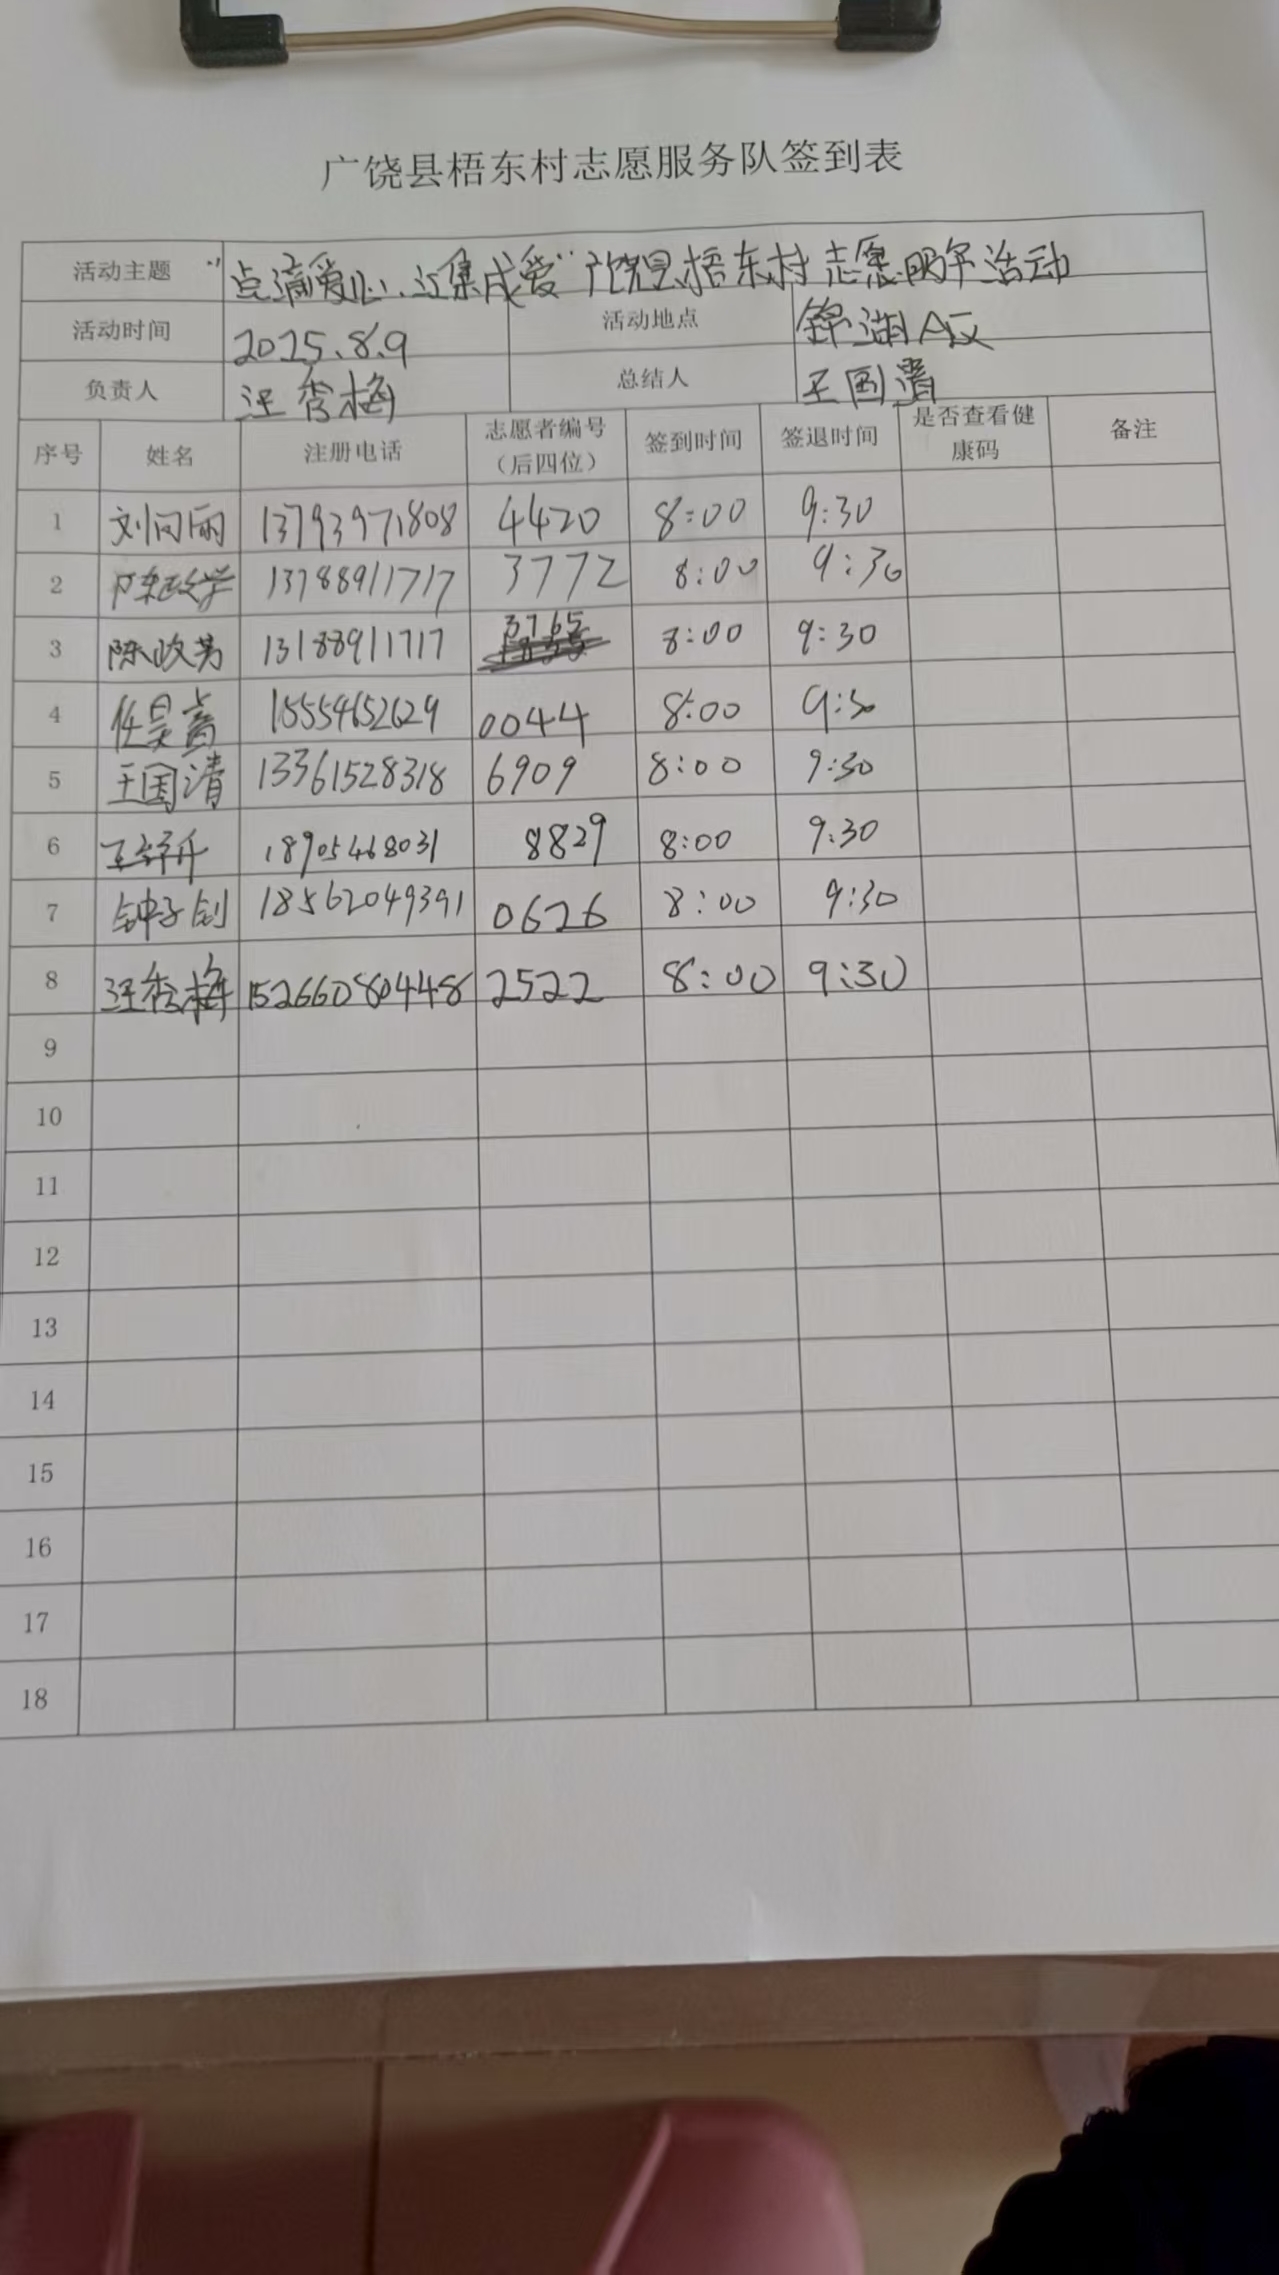 广饶县梧东村志愿服务队签到表
活动主题 "点滴爱心,汇集成爱"广饶县梧东村志愿服务活动
活动时间 2025.8.9 活动地点 锦湖A区
负责人 汪秀梅 总结人 王国清
序号 姓名 注册电话 志愿者编号(后四位) 签到时间 签退时间 是否查看健康码 备注
1 刘同丽 13793971808 4420 8:00 9:30
2 陈政学 13188911717 3772 8:00 9:30
3 陈政芳 13188911717 3765 8:00 9:30
4 任昊 15554652629 0044 8:00 9:30
5 王国清 13361528318 6909 8:00 9:30
6 18905468031 8829 8:00 9:30
7 钟子钊 18562049391 0626 8:00 9:30
8 汪秀梅 15266080448 2522 8:00 9:30
9
10
11
12
13
14
15
16
17
18